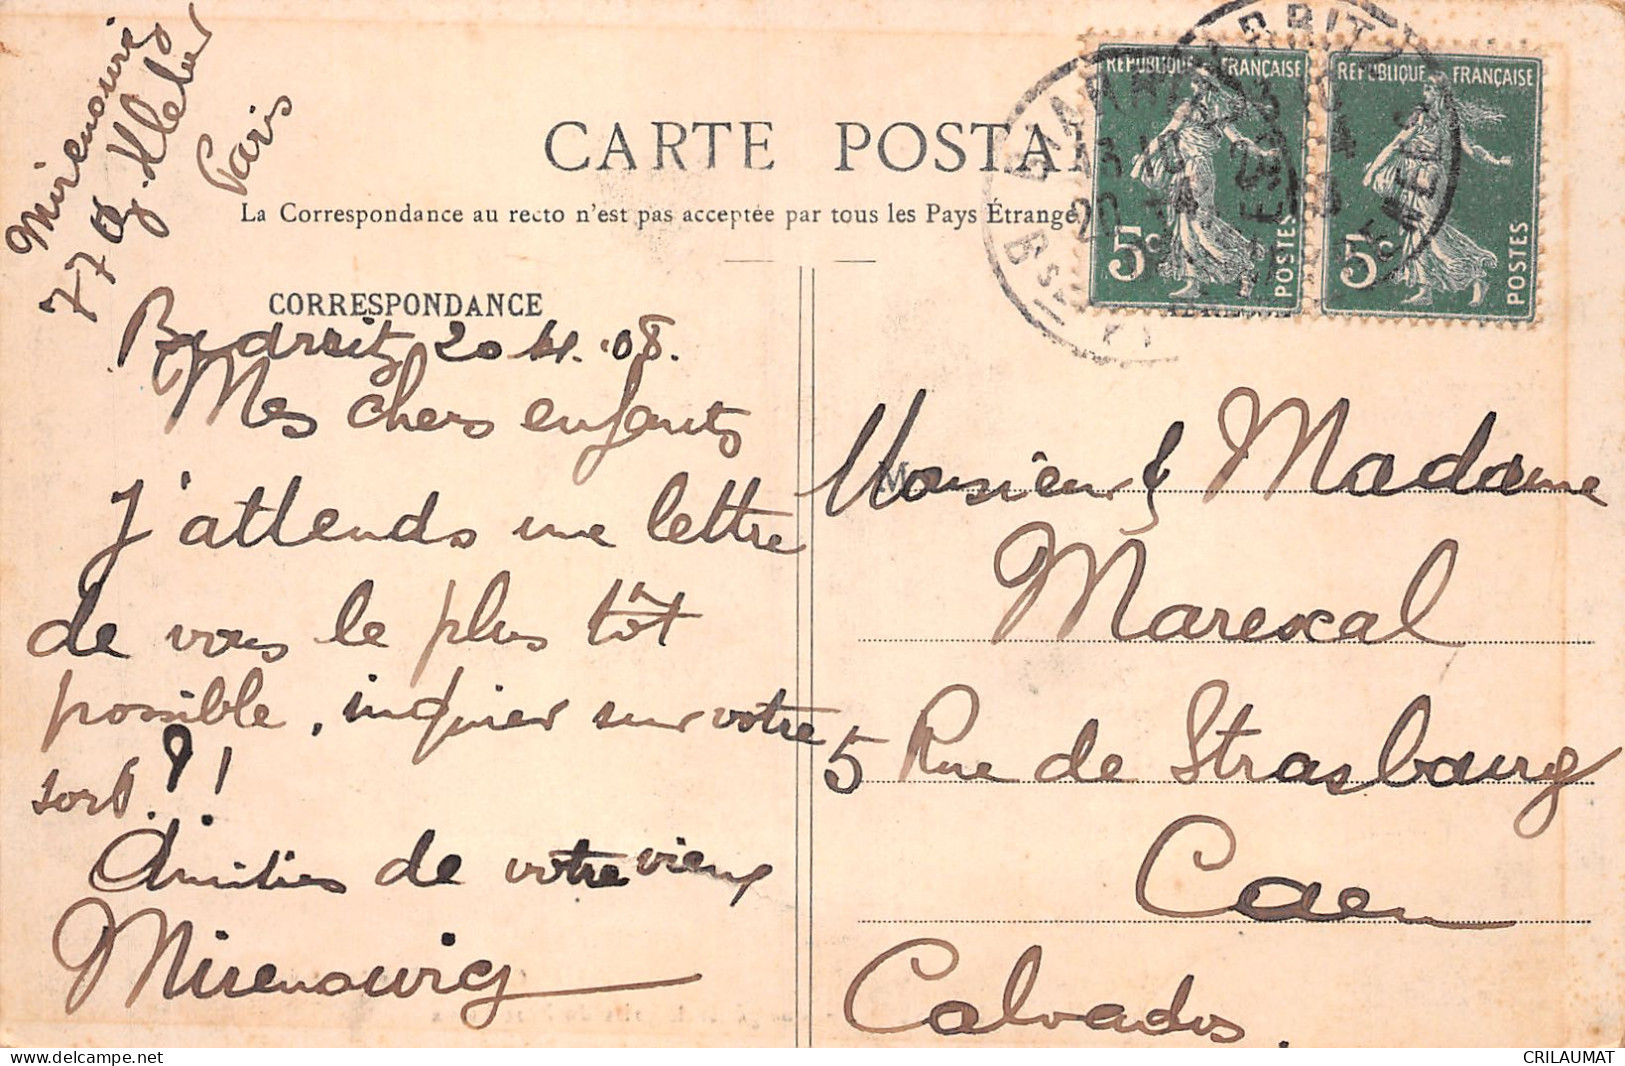 Mirenowicz
77 av. Kleber
Paris
CARTE POSTA
La Correspondance au recto n'est pas acceptée par tous les Pays Étrange
RÉPUBLIQUE FRANÇAISE
5c
POSTES
RÉPUBLIQUE FRANÇAISE
5c
POSTES
CORRESPONDANCE
Biarritz 20 4. 08.
Mes chers enfants
J'attends une lettre
de vous le plus tôt
possible, inquier sur votre
sort. ? !
Amitiés de votre vieux
Mirenowicz
M
Monsieur & Madame
Marexal
5 Rue de Strasbourg
Caen
Calvados.
CRILAUMAT